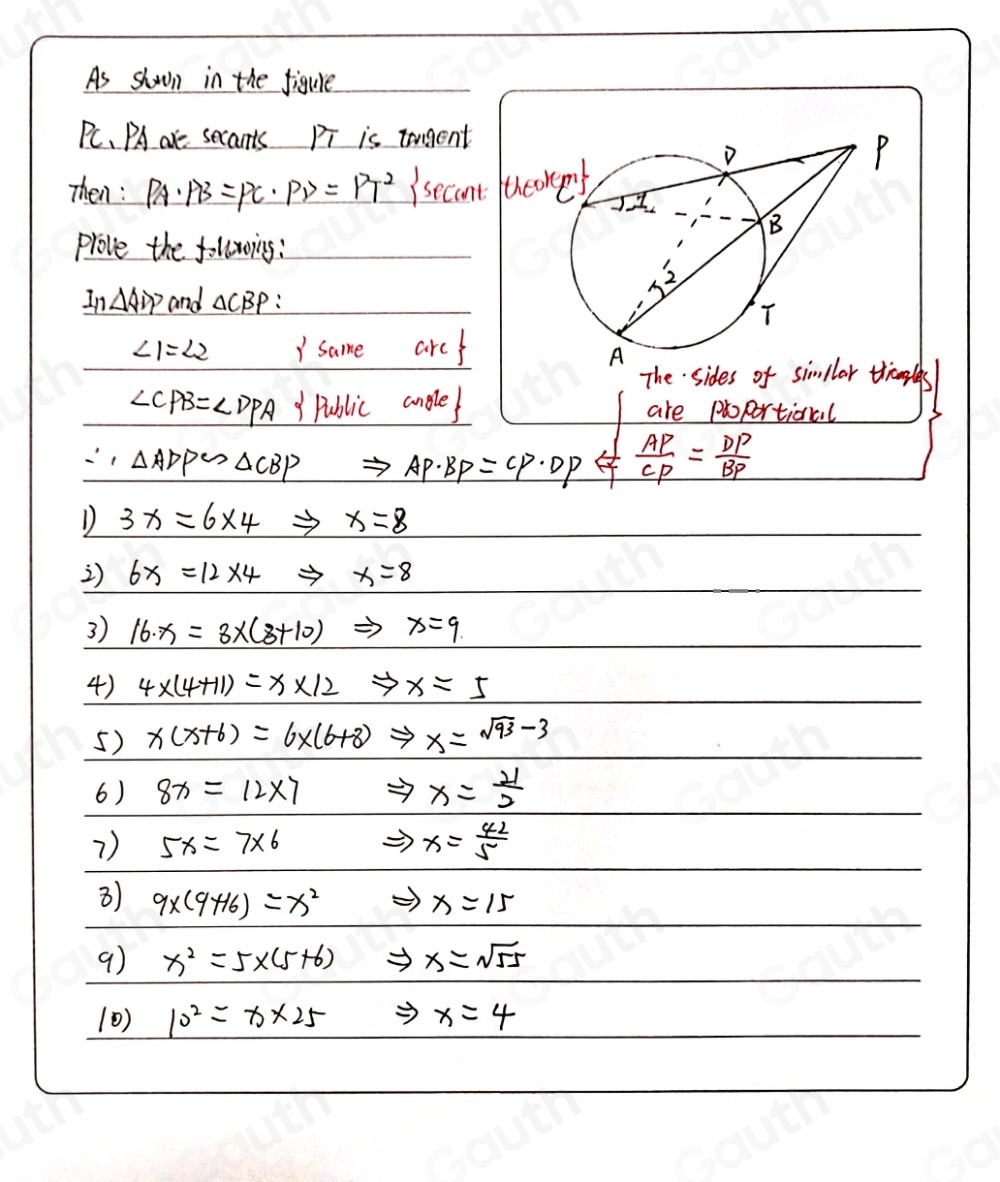 As shown in the figure
PC、PA are secants PT is tangent
Then: PA·PB = PC·PD = PT² {secant theorem}
Prove the following:
In △ADP and △CBP:
∠1=∠2 {same arc}
∠CPB=∠DPA {Public angle}
∴ △ADP∽△CBP ⇒ AP·BP = CP·DP ⇐ {The sides of similar triangles are proportional AP/CP = DP/BP}
1) 3x = 6×4 ⇒ x=8
2) 6x = 12×4 ⇒ x=8
3) 16·x = 8×(8+10) ⇒ x=9.
4) 4×(4+11) = x×12 ⇒ x= 5
5) x(x+6) = 6×(6+8) ⇒ x= √93 -3
6) 8x = 12×7 ⇒ x= 21/2
7) 5x= 7×6 ⇒ x= 42/5
8) 9×(9+16) = x² ⇒ x=15
9) x² = 5×(5+6) ⇒ x=√55
10) 10² = x×25 ⇒ x= 4
P
D
C
1
B
2
T
A
Gauth